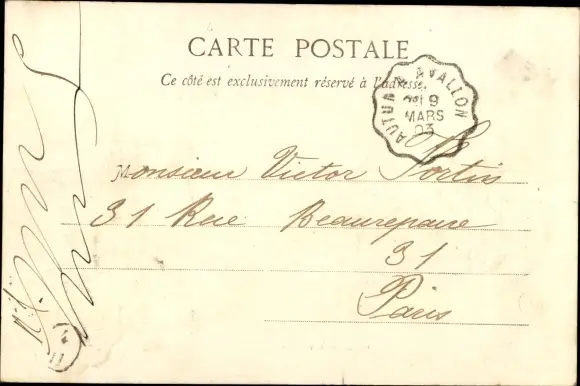 CARTE POSTALE
Ce côté est exclusivement réservé à l'adresse.
AUTUN A AVALLON
19
MARS
03
Monsieur Victor Fortin
31 Rue Beaurepaire
31
Paris